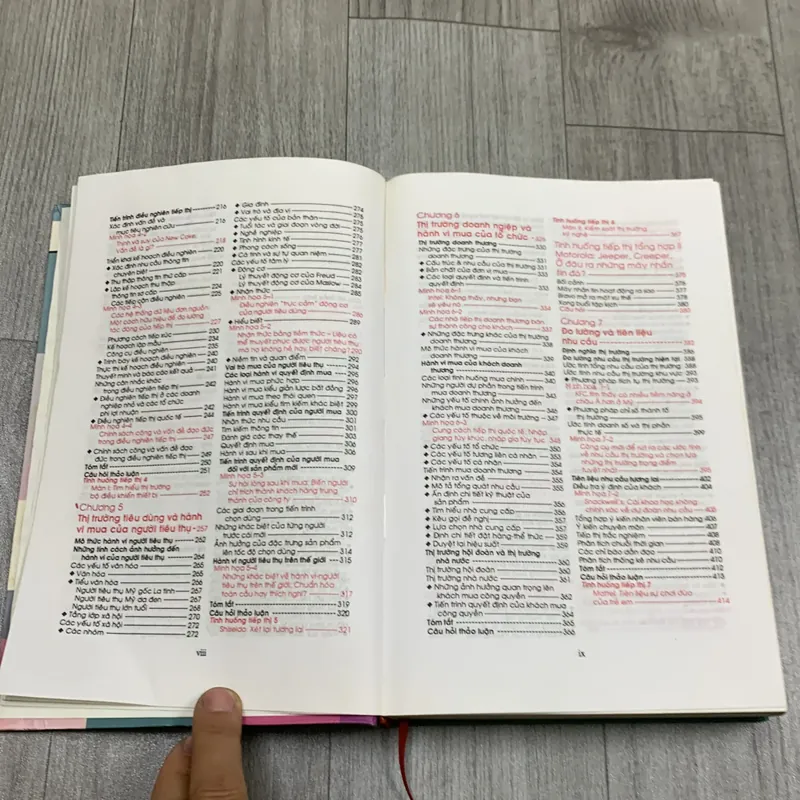 Tiến trình điều nghiên tiếp thị 216
Xác định vấn đề và
mục tiêu nghiên cứu 216
Minh họa 4-2
Thịnh và suy của New Coke,
vấn đề là gì? 218
Triển khai kế hoạch điều nghiên 220
Xác định nhu cầu thông tin
chuyên biệt 220
Thu thập thông tin thứ cấp 221
Lập kế hoạch thu thập
thông tin sơ cấp 224
Các tiếp cận điều nghiên 224
Minh họa 4-3
Các hệ thống dữ liệu đơn nguồn:
Một cách hữu hiệu để đo lường
tác động của tiếp thị 227
Phương cách tiếp xúc 235
Kế hoạch lập mẫu
Công cụ điều nghiên
Trình bày kế hoạch điều nghiên 240
Thực thi kế hoạch điều nghiên 240
Thuyết minh và báo cáo kết quả 241
Những cân nhắc khác
trong điều nghiên tiếp thị 242
Điều nghiên tiếp thị ở các doanh
nghiệp nhỏ và các tổ chức
phi lợi nhuận 242
Điều nghiên tiếp thị quốc tế 244
Minh họa 4-4
Chính sách công và vấn đề đạo đức
trong điều nghiên tiếp thị 247
Chính sách công và vấn đề đạo đức
trong điều nghiên tiếp thị 249
Tóm tắt 250
Câu hỏi thảo luận 251
Tình huống tiếp thị 4
Màn I: Tìm hiểu thị trường
bộ điều khiển thiết bị 252
Chương 5
Thị trường tiêu dùng và hành
vi mua của người tiêu thụ 257
Mô thức hành vi người tiêu thụ 262
Những tính cách ảnh hưởng đến
hành vi của người tiêu thụ 264
Các yếu tố văn hóa 265
Văn hóa 265
Tiểu văn hóa 267
Người tiêu thụ Mỹ gốc La tinh 267
Người tiêu thụ Mỹ da đen 268
Người tiêu thụ lớn tuổi 268
Tầng lớp xã hội 270
Các yếu tố xã hội 272
Các nhóm 272
viii
Gia đình 274
Vai trò và địa vị 275
Các yếu tố của bản thân
Tuổi tác và giai đoạn vòng đời
Nghề nghiệp
Tình hình kinh tế
Phong cách sống
Cá tính và sự tự quan niệm
Các yếu tố tâm lý
Động cơ
Lý thuyết động cơ của Freud
Lý thuyết động cơ của Maslow
Nhận thức
Minh họa 5-1
Điều nghiên "trực cảm" động cơ
của người tiêu dùng 286
Hiểu biết 289
Minh họa 5-2
Nhận thức bằng tiềm thức - Liệu có
thể thuyết phục được người tiêu thụ,
mà họ không hề hay biết chăng? 290
Niềm tin và quan điểm 292
Vai trò mua của người tiêu thụ 294
Các loại hành vi quyết định mua
Hành vi mua phức hợp
Hành vi mua kiểu giản lược bất đồng
Hành vi mua theo thói quen
Hành vi mua kiểu tìm kiếm khác biệt
Tiến trình quyết định của người mua 300
Nhận thức nhu cầu 301
Tìm kiếm thông tin
Đánh giá các thay thế
Quyết định mua
Hành vi sau khi mua
Tiến trình quyết định của người mua
đối với sản phẩm mới 309
Minh họa 5-3
Sự hài lòng sau khi mua: Biến người
chỉ trích thành khách hàng trung
thành của công ty 310
Các giai đoạn trong tiến trình
chọn dùng 312
Những khác biệt của từng người
trước cái mới 312
Ảnh hưởng của đặc trưng sản phẩm
lên tốc độ chọn dùng 314
Hành vi người tiêu thụ trên thế giới 315
Minh họa 5-4
Những khác biệt về hành vi người
tiêu thụ trên thế giới: Chuẩn hóa
toàn cầu hay thích nghi? 317
Tóm tắt 319
Câu hỏi thảo luận 320
Tình huống tiếp thị 5
Shiseido: Xét lại tương lai 321
Chương 6
Thị trường doanh nghiệp và
hành vi mua của tổ chức 325
Thị trường doanh thương
Những đặc trưng của thị trường
doanh thương 331
Cấu trúc & nhu cầu của thị trường 331
Bản chất của đơn vị mua 333
Các loại quyết định và tiến trình
quyết định
Minh họa 6-1
Intel: Không thấy, nhưng bạn
sẽ yêu nó
Minh họa 6-2
Các nhà tiếp thị doanh thương bán
sự thành công cho khách 337
Những đặc trưng khác của thị trường
doanh thương
Mô thức hành vi mua của khách
doanh thương
Hành vi mua của khách doanh
thương
Các loại tình huống mua chính
Những người dự phần trong tiến trình
mua doanh thương
Những yếu tố chính ảnh hưởng đến
khách mua doanh thương
Các yếu tố thuộc về môi trường 347
Minh họa 6-3
Cung cách tiếp thị quốc tế: Nhập
giang tùy khúc, nhập gia tùy tục 348
Các yếu tố tổ chức
Các yếu tố tương liên cá nhân
Các yếu tố cá nhân
Tiến trình mua doanh thương
Nhận ra vấn đề
Mô tả tổng quát nhu cầu
Ấn định chi tiết kỹ thuật của
sản phẩm
Tìm hiểu nhà cung cấp
Kêu gọi đề nghị
Lựa chọn nhà cung cấp
Định chi tiết đặt hàng-thể thức
Duyệt lại hiệu suất
Thị trường hội đoàn và thị trường
nhà nước 360
Thị trường hội đoàn 360
Thị trường nhà nước 361
Những ảnh hưởng quan trọng lên
khách mua công quyền
Tiến trình quyết định của khách mua
công quyền 364
Tóm tắt 365
Câu hỏi thảo luận 366
ix
Tình huống tiếp thị 6
kỹ nghệ 367
Tình huống tiếp thị tổng hợp II
Motorola: Jeeper, Creeper...
Ở đâu ra những máy nhắn
tin đó? 375
Bối cảnh
Máy nhắn tin hoạt động ra sao
Bravo mở ra một xu thế
Xong buổi tập kích
Câu hỏi
Chương 7
Đo lường và tiên liệu
nhu cầu 382
Định nghĩa thị trường
Đo lường nhu cầu thị trường hiện tại
Ước tính tổng nhu cầu của thị trường
Ước tính nhu cầu thị trường khu vực
Phương pháp tích tụ thị trường
Minh họa 7-1
KFC tìm thấy có nhiều tiềm năng ở
châu Á hơn ở Mỹ
Phương pháp chỉ số thành tố
thị trường
Ước tính doanh số và thị phần
thực tế
Minh họa 7-2
Công cụ mới để nó ra các ước tính
về nhu cầu và chọn lựa những
thị trường trọng điểm
tuyệt nhất
Tiên liệu nhu cầu tương lai 402
Điều tra ý định của khách 404
Tổng hợp ý kiến nhân viên bán hàng
Ý kiến chuyên môn
Tiếp thị trắc nghiệm
Phân tích chuỗi thời gian
Các chỉ báo dẫn đạo
Phân tích thống kê nhu cầu
Tóm tắt
Câu hỏi thảo luận 413
Tình huống tiếp thị 7
Mattel: Tiên liệu sự chơi đùa
của trẻ em 414